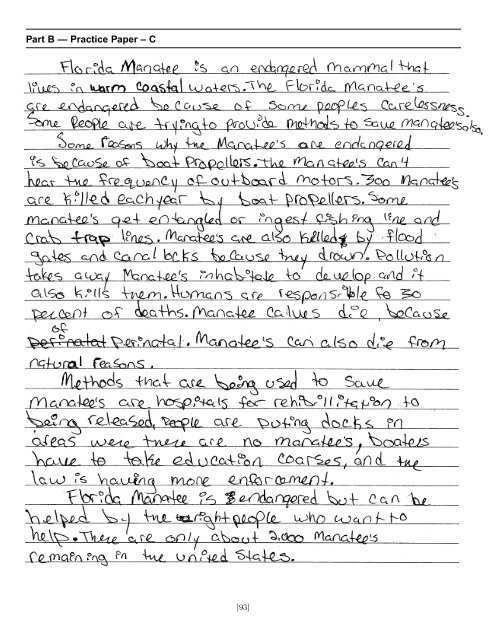 Part B — Practice Paper – C
Florida Manatee is an endangered mammal that
lives in warm coastal waters. The Florida Manatee's
are endangered because of some peoples carelessness.
Some People are trying to provide methods to save manatees also.
Some reasons why the Manatee's are endangered
is because of boat Propellers. the Manatee's can't
hear the frequency of outboard motors. 300 Manatee's
are killed each year by boat propellers. Some
manatee's get entangled or ingest fishing line and
crab trap lines. Manatee's are also killed by flood
gates and canal locks because they drown. Pollution
takes away Manatee's inhabitate to develop and it
also kills them. Humans are responsible fo 30
percent of deaths. Manatee calves die because
of
perinatal Perinatal. Manatee's can also die from
natural reasons.
Methods that are being used to save
manatee's are hospitals for rehibillitation to
being released, People are puting docks in
areas were there are no manatee's, boaters
have to take education coarses, and the
law is having more enforcement.
Florida Manatee is endangered but can be
helped by the right people who want to
help. There are only about 2,000 Manatee's
remaining in the united States.
[93]